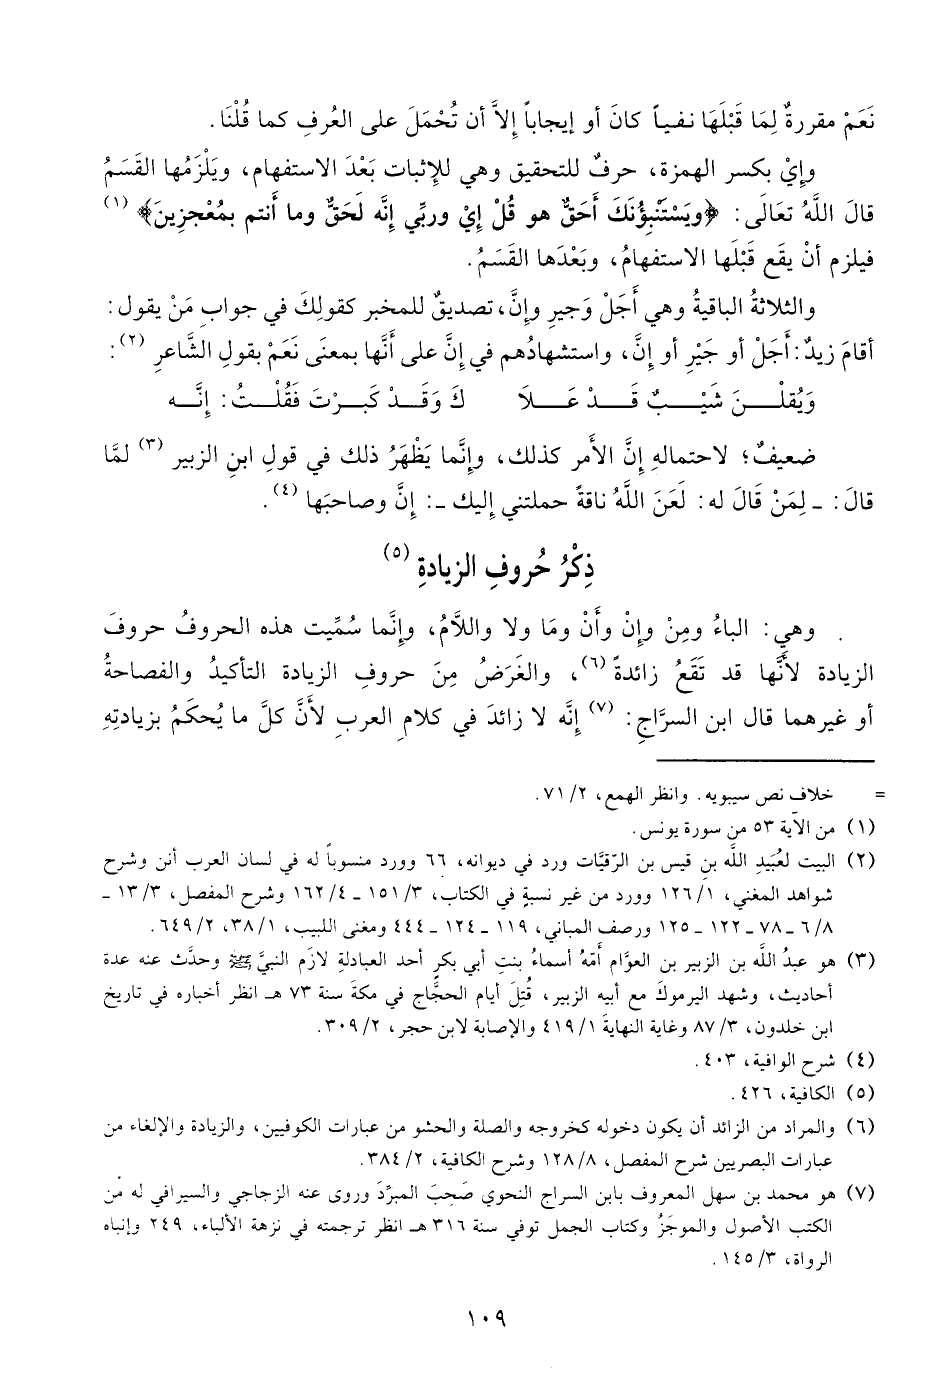 نَعَمْ مقررةٌ لِمَا قَبْلَهَا نفياً كانَ أو إيجاباً إلاَّ أن تُحْمَلَ على العُرفِ كما قُلْنَا.
وإيْ بكسر الهمزة، حرفٌ للتحقيق وهي للإثبات بَعْدَ الاستفهام، ويَلْزَمُها القَسَمُ
قالَ اللَّهُ تعَالَى: ﴿ويَسْتَنْبِؤُنَكَ أَحَقٌّ هو قُلْ إيْ وربِّي إنَّه لَحَقٌّ وما أَنتم بمُعْجزِينَ﴾ (١)
فيلزم أنْ يقَع قَبْلَها الاستفهامُ، وبَعْدَها القَسَمُ.
والثلاثةُ الباقيةُ وهي أَجَلْ وَجيرِ وإنَّ، تصديقٌ للمخبر كقولِكَ في جوابِ مَنْ يقول:
أقامَ زيدٌ: أَجَلْ أو جَيْرِ أو إنَّ، واستشهادُهم في إنَّ على أَنَّها بمعنَى نَعَمْ بقولِ الشَّاعرِ (٢):
وَيُقلْـــنَ شَيْـــبٌ قَـــدْ عَـــلاَ كَ وَقَــدْ كَبِــرْتَ فَقُلْــتُ: إنَّــه
ضعيفٌ؛ لاحتمالهِ إنَّ الأمر كذلك، وإنَّما يَظْهَرُ ذلك في قولِ ابنِ الزبير (٣) لمَّا
قالَ: ـ لِمَنْ قَالَ له: لَعَنَ اللَّهُ ناقةً حملتني إليك ـ: إنَّ وصاحبَها (٤).
ذِكْرُ حُروفِ الزيادةِ (٥)
. وهي: الباءُ ومِنْ وإنْ وأَنْ ومَا ولا واللاَّمُ، وإنَّما سُمِّيت هذه الحروفُ حروفَ
الزيادة لأَنَّها قد تَقَعُ زائدةً (٦)، والغَرَضُ مِنَ حروفِ الزيادة التأكيدُ والفصاحةُ
أو غيرهما قال ابن السرَّاجِ: (٧) إنَّه لا زائدَ في كلامِ العربِ لأَنَّ كلَّ ما يُحكَمُ بزيادتِهِ
= خلاف نص سيبويه. وانظر الهمع، ٢/ ٧١.
(١) من الآية ٥٣ من سورة يونس.
(٢) البيت لعُبَيدِ اللَّه بن قيس بن الرّقيَّات ورد في ديوانه، ٦٦ وورد منسوباً له في لسان العرب أنن وشرح
شواهد المغني، ١/ ١٢٦ وورد من غير نسبةٍ في الكتاب، ٣/ ١٥١ ـ ٤/ ١٦٢ وشرح المفصل، ٣/ ١٣ ـ
٨/ ٦ ـ ٧٨ ـ ١٢٢ ـ ١٢٥ ورصف المباني، ١١٩ ـ ١٢٤ ـ ٤٤٤ ومغنى اللبيب، ١/ ٣٨، ٢/ ٦٤٩.
(٣) هو عبدُ اللَّه بن الزبير بن العوَّام أُمّهُ أسماءُ بنتِ أبي بكرٍ أحد العبادلةِ لازم النبيَّ ﷺ وحدَّث عنه عدة
أحاديث، وشهد اليرموكَ مع أبيه الزبير، قُتِلَ أيام الحجَّاج في مكة سنة ٧٣ هـ انظر أخباره في تاريخ
ابن خلدون، ٣/ ٨٧ وغاية النهاية ١/ ٤١٩ والإصابة لابن حجر، ٢/ ٣٠٩.
(٤) شرح الوافية، ٤٠٣.
(٥) الكافية، ٤٢٦.
(٦) والمراد من الزائد أن يكون دخوله كخروجه والصلة والحشو من عبارات الكوفيين، والزيادة والإلغاء من
عبارات البصريين شرح المفصل، ٨/ ١٢٨ وشرح الكافية، ٢/ ٣٨٤.
(٧) هو محمد بن سهل المعروف بابن السراج النحوي صَحِبَ المبرِّدَ وروى عنه الزجاجي والسيرافي له من
الكتب الأصول والموجَزُ وكتاب الجمل توفي سنة ٣١٦ هـ انظر ترجمته في نزهة الألباء، ٢٤٩ وإنباه
الرواة، ٣/ ١٤٥.
١٠٩